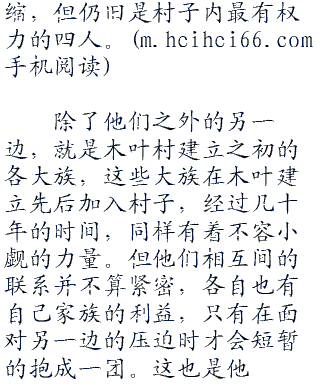 缩，但仍旧是村子内最有权
力的四人。(m.hcihci66.com
手机阅读)
除了他们之外的另一
边，就是木叶村建立之初的
各大族，这些大族在木叶建
立先后加入村子，经过几十
年的时间，同样有着不容小
觑的力量。但他们相互间的
联系并不算紧密，各自也有
自己家族的利益，只有在面
对另一边的压迫时才会短暂
的抱成一团。这也是他